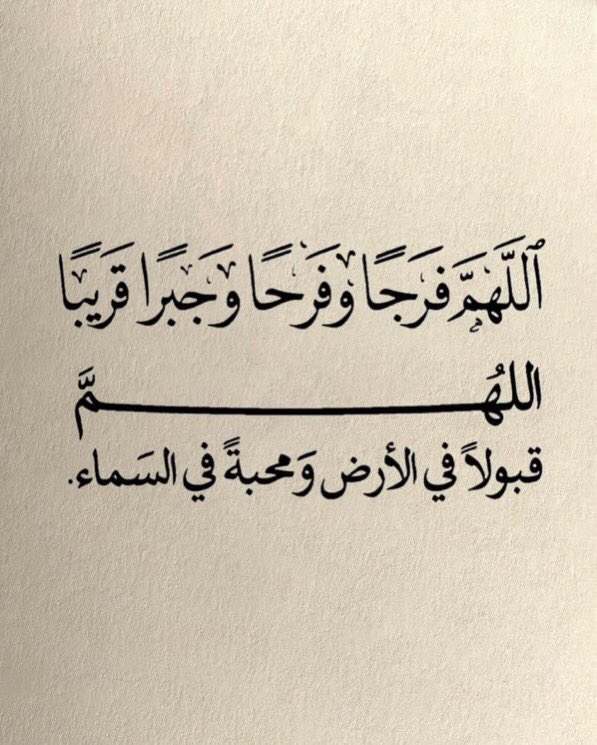 ٱللَّهُمَّ فَرَجًا وَفَرَحًا وَجَبرًا قَرِيبًا
اللهُــــــــــــــــــمَّ
قبولاً في الأرض وَمحبةً في السَماء.